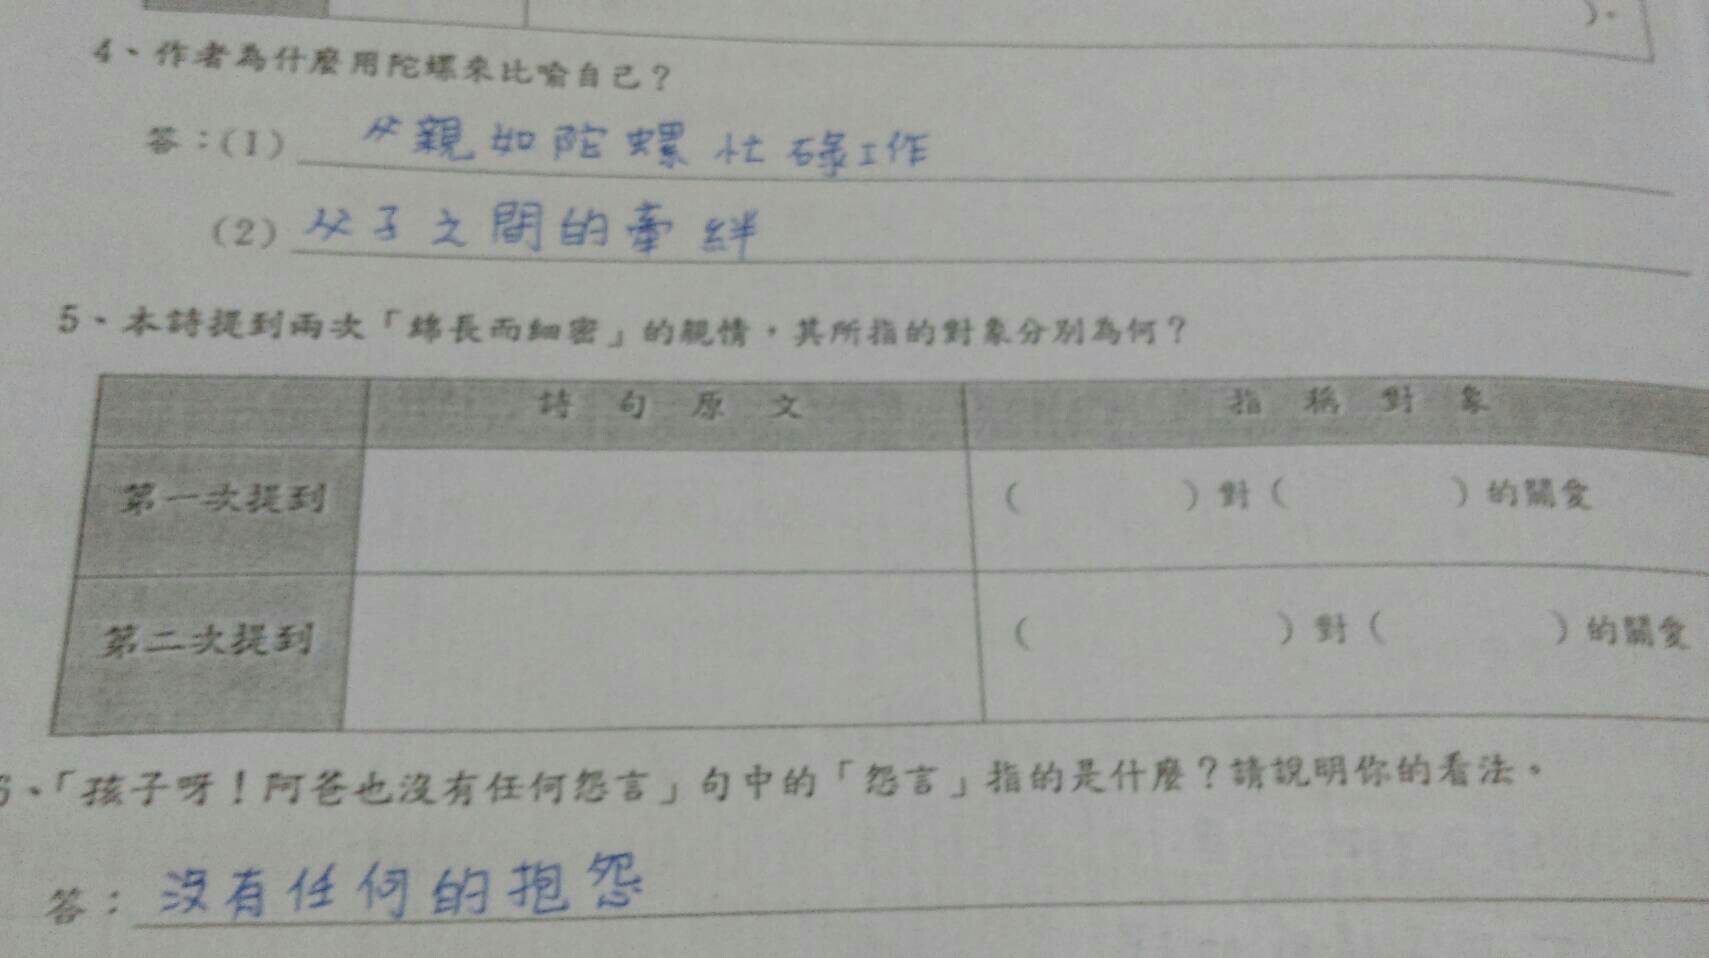 )。
4、作者為什麼用陀螺來比喻自己？
答：(1) 父親如陀螺忙碌工作
(2) 父子之間的牽絆
5、本詩提到兩次「綿長而細密」的親情，其所指的對象分別為何？
詩句原文 指稱對象
第一次提到 ( )對( )的關愛
第二次提到 ( )對( )的關愛
6、「孩子呀！阿爸也沒有任何怨言」句中的「怨言」指的是什麼？請說明你的看法。
答：沒有任何的抱怨